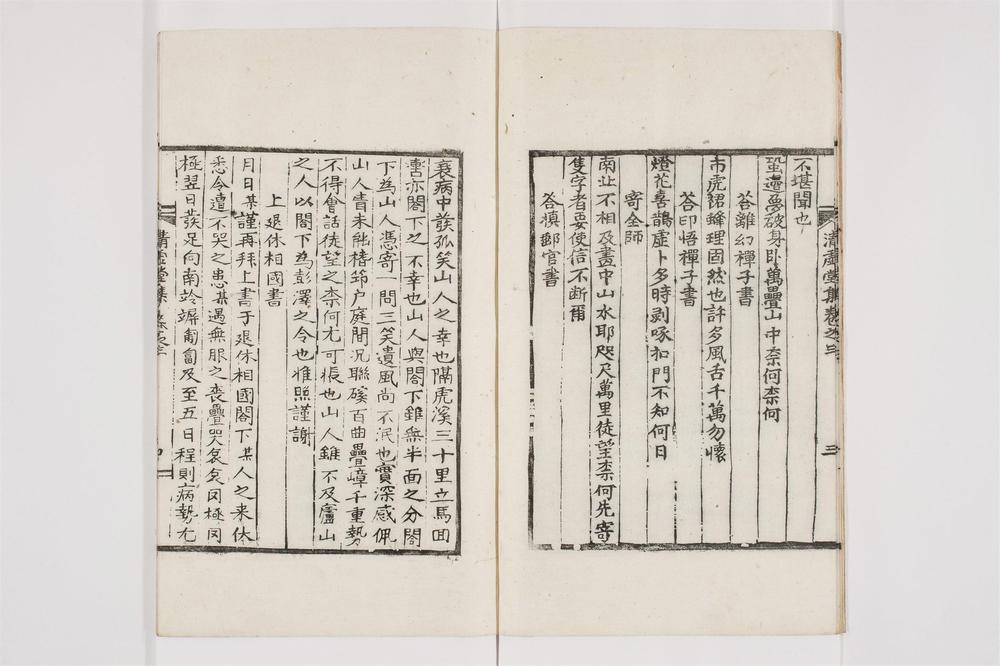 不堪聞也
蛩邊夢破身臥萬疊山中柰何柰何
答離幻禪子書
市虎裙蜂理固然也許多風舌千萬勿懷
答印悟禪子書
燈花喜鵲虛卜多時剥啄扣門不知何日
寄全師
南北不相及畫中山水耶咫尺萬里徒望柰何先寄
隻字者要使信不斷爾
答慎郵官書
清虛堂集卷之三
三
衰病中發孤笑山人之幸也隔虎溪三十里立馬回
亦閤下之不幸也山人與閤下雖無半面之分閤
下爲山人憑寄一問三笑遺風尚不泯也實深感佩
山人眚未能榰笻户庭間況聯磎百曲疊嶂千重勢
不得會話徒望之柰何尤可悵也山人雖不及廬山
之人以閤下爲彭澤之令也惟照謹謝
上退休相國書
月日某謹再拜上書于退休相國閤下某人之来休
悉令遭不哭之患某遇無服之喪疊哭哀哀罔極罔
極翌日發足向南竛竮匍匐及至五日程則病勢尤
清虛堂集